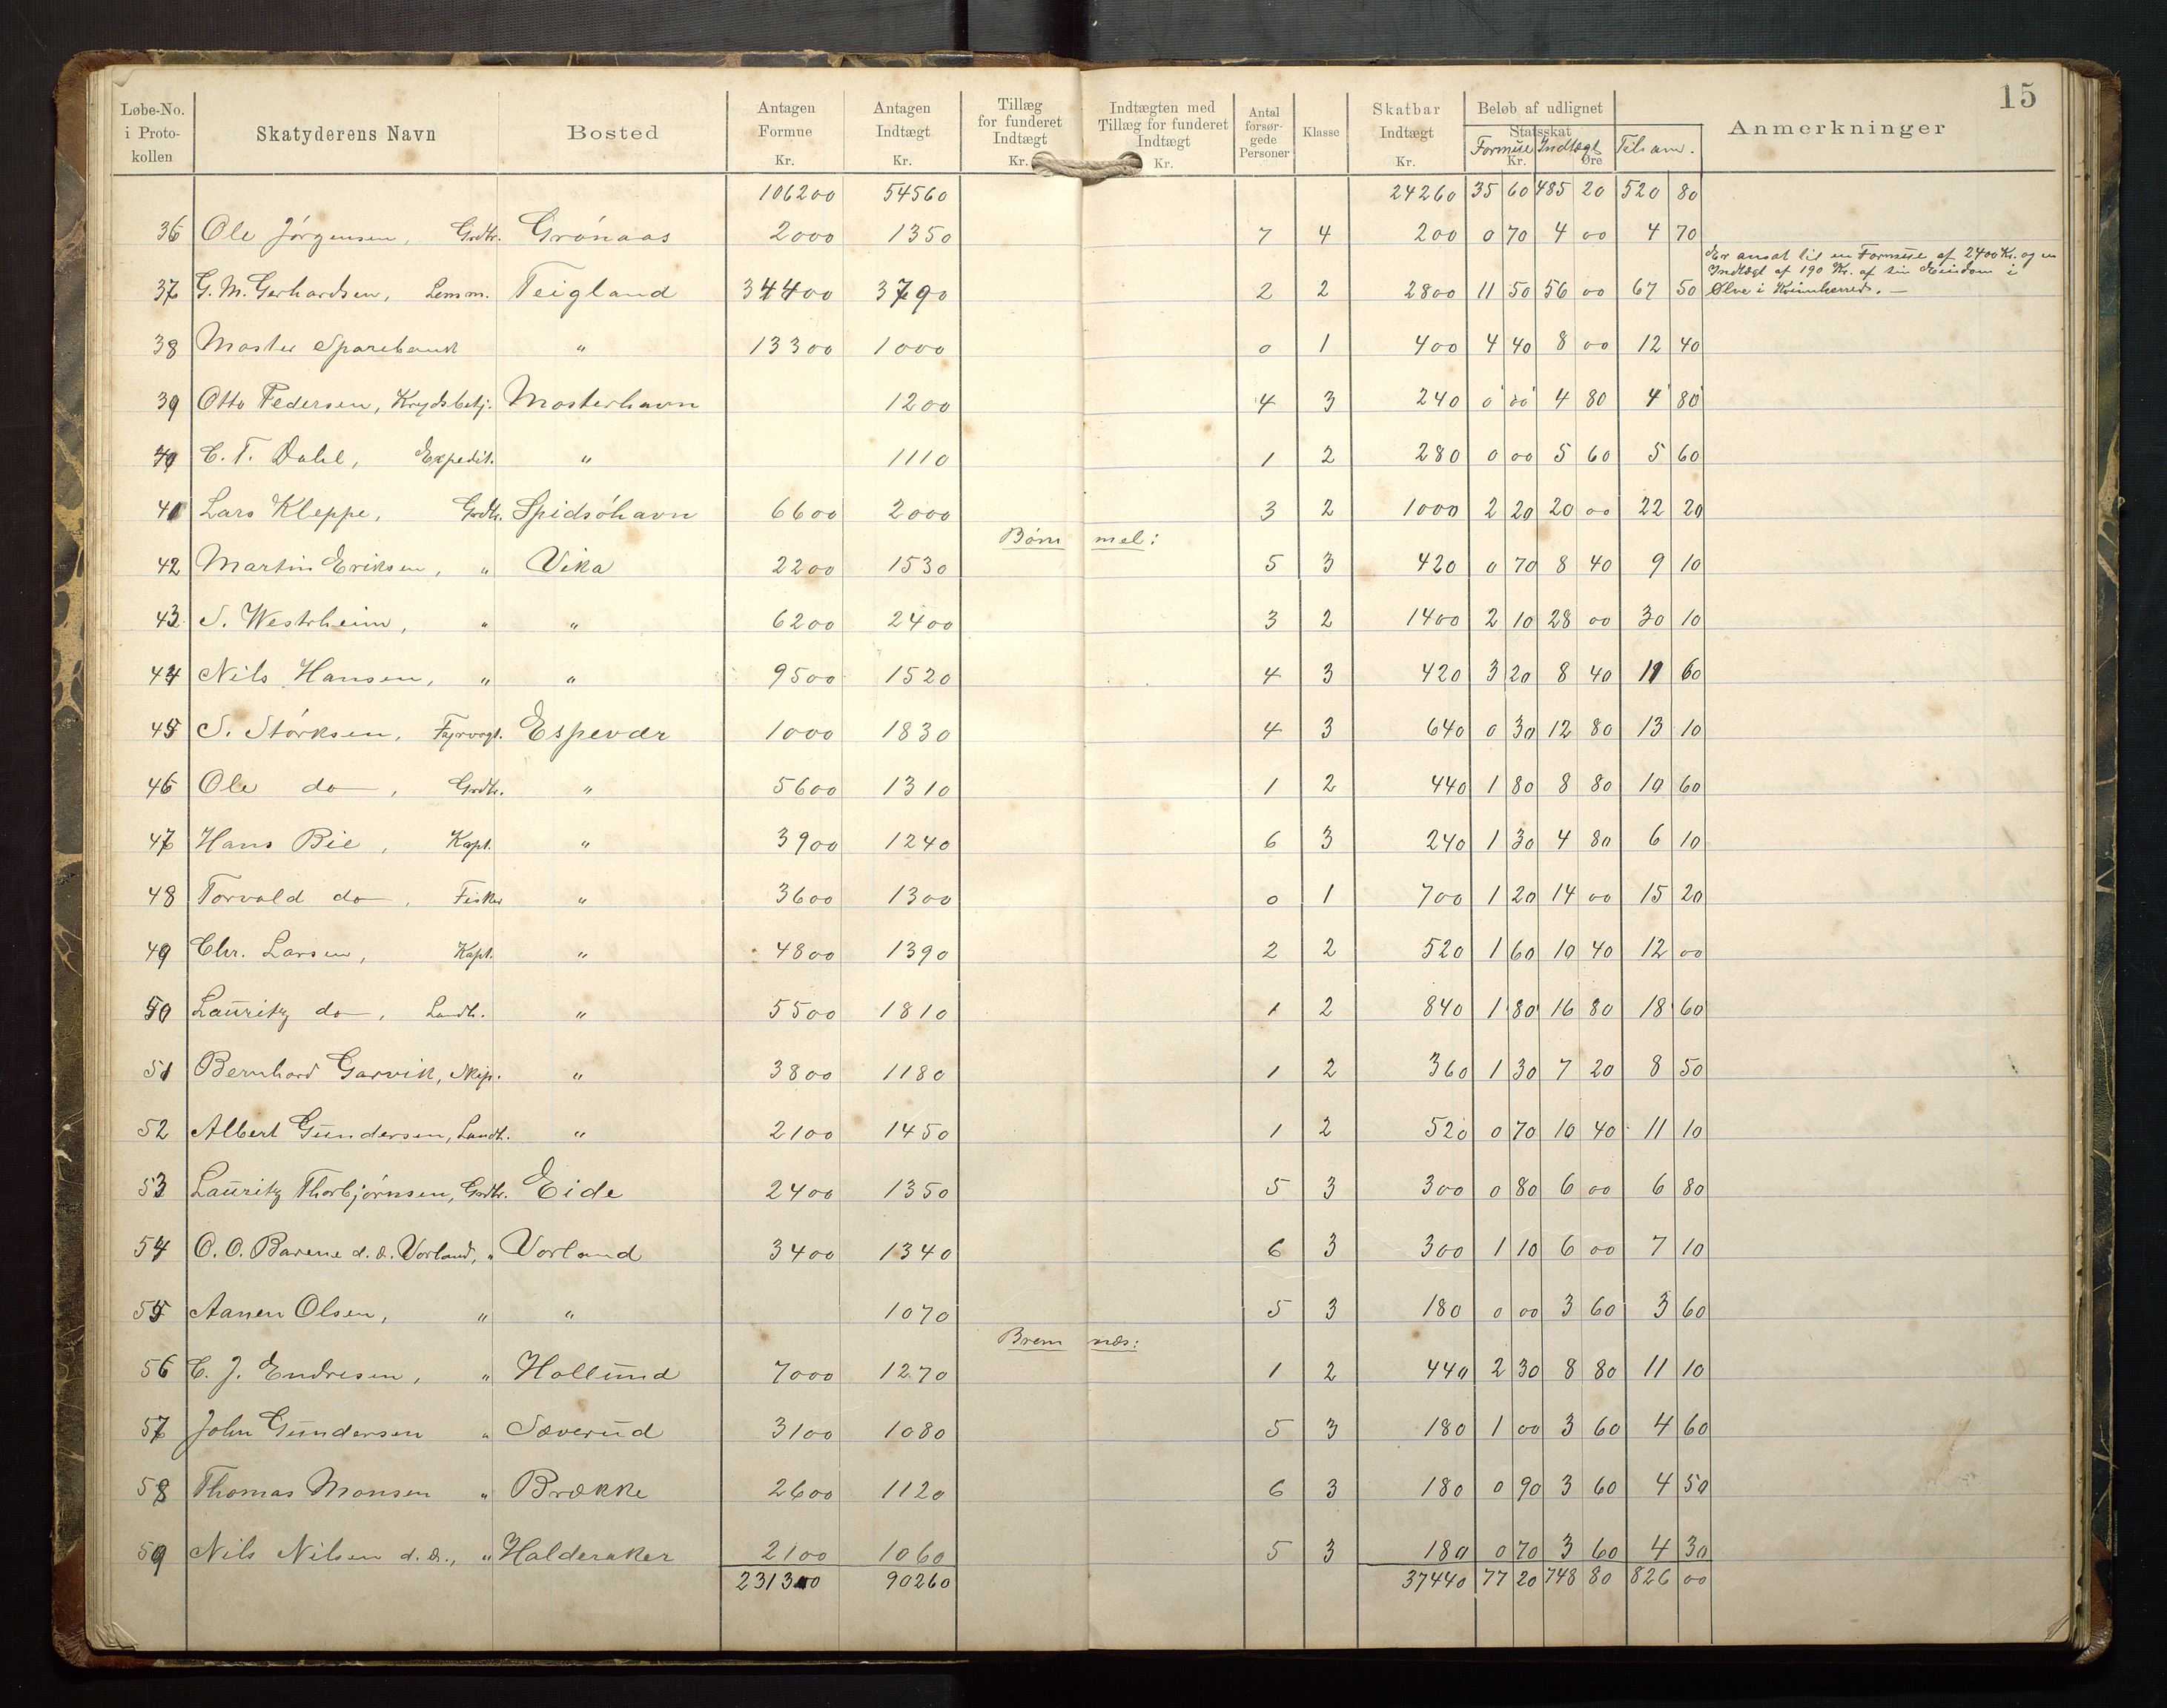 15
Løbe-No. i Protokollen | Skatyderens Navn | Bosted | Antagen Formue Kr. | Antagen Indtægt Kr. | Tillæg for funderet Indtægt Kr. | Indtægten med Tillæg for funderet Indtægt Kr. | Antal forsørgede Personer | Klasse | Skatbar Indtægt Kr. | Beløb af udlignet Statsskat Kr. Øre | Formue | Indtægt | Tilsam. | Anmerkninger
106200 54560 24260 35 60 485 20 520 80
36 Ole Jørgensen, Grdbr. Grønaas 2000 1350 7 4 200 0 70 4 00 4 70
Er ansat til en Formue af 2400 Kr. og en
Indtægt af 190 Kr. af sin Eiendom i
Ølve i Kvinnherred. —
37 G. M. Gerhardsen, Lensm. Teigland 34400 3790 2 2 2800 11 50 56 00 67 50
38 Moster Sparebank " 13300 1000 0 1 400 4 40 8 00 12 40
39 Otto Pedersen, Krydsbetj. Mosterhavn 1200 4 3 240 0 00 4 80 4 80
40 C. T. Dahl, Expedit. " 1110 1 2 280 0 00 5 60 5 60
41 Lars Kleppe, Grdbr. Spidsøhavn 6600 2000 3 2 1000 2 20 20 00 22 20
Bømmel:
42 Martin Eriksen, " Vika 2200 1530 5 3 420 0 70 8 40 9 10
43 S. Westrheim, " " 6200 2400 3 2 1400 2 10 28 00 30 10
44 Nils Hansen, " " 9500 1520 4 3 420 3 20 8 40 11 60
45 S. Størksen, Fyrvogt. Espevær 1000 1830 4 3 640 0 30 12 80 13 10
46 Ole do, Grdbr. " 5600 1310 1 2 440 1 80 8 80 10 60
47 Hans Bie, Kapt. " 3900 1240 6 3 240 1 30 4 80 6 10
48 Torvald do, Fisker " 3600 1300 0 1 700 1 20 14 00 15 20
49 Chr. Larsen, Kapt. " 4800 1390 2 2 520 1 60 10 40 12 00
50 Lauritz do, Landh. " 5500 1810 1 2 840 1 80 16 80 18 60
51 Bernhard Garvik, Skip. " 3800 1180 1 2 360 1 30 7 20 8 50
52 Albert Gundersen, Landh. " 2100 1450 1 2 520 0 70 10 40 11 10
53 Lauritz Thorbjørnsen, Grdbr. Eide 2400 1350 5 3 300 0 80 6 00 6 80
54 O. O. Barene d. æ. Vorland, " Vorland 3400 1340 6 3 300 1 10 6 00 7 10
55 Aanen Olsen, " " 1070 5 3 180 0 00 3 60 3 60
Bremnæs:
56 C. J. Endresen, " Hollund 7000 1270 1 2 440 2 30 8 80 11 10
57 John Gundersen " Sæverud 3100 1080 5 3 180 1 00 3 60 4 60
58 Thomas Monsen " Brække 2600 1120 6 3 180 0 90 3 60 4 50
59 Nils Nilsen d. æ., " Halderaker 2100 1060 5 3 180 0 70 3 60 4 30
231300 90260 37440 77 20 748 80 826 00